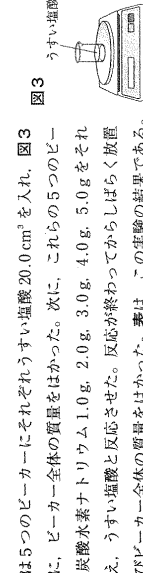 は5つのビーカーにそれぞれうすい塩酸20.0cm³を入れ, 図3
に, ビーカー全体の質量をはかった。次に, これらの5つのビー
炭酸水素ナトリウム1.0g, 2.0g, 3.0g, 4.0g, 5.0gをそれ
え, うすい塩酸と反応させた。反応が終わってからしばらく放置
びビーカー全体の質量をはかった。表は, この実験の結果である。
図3
うすい塩酸